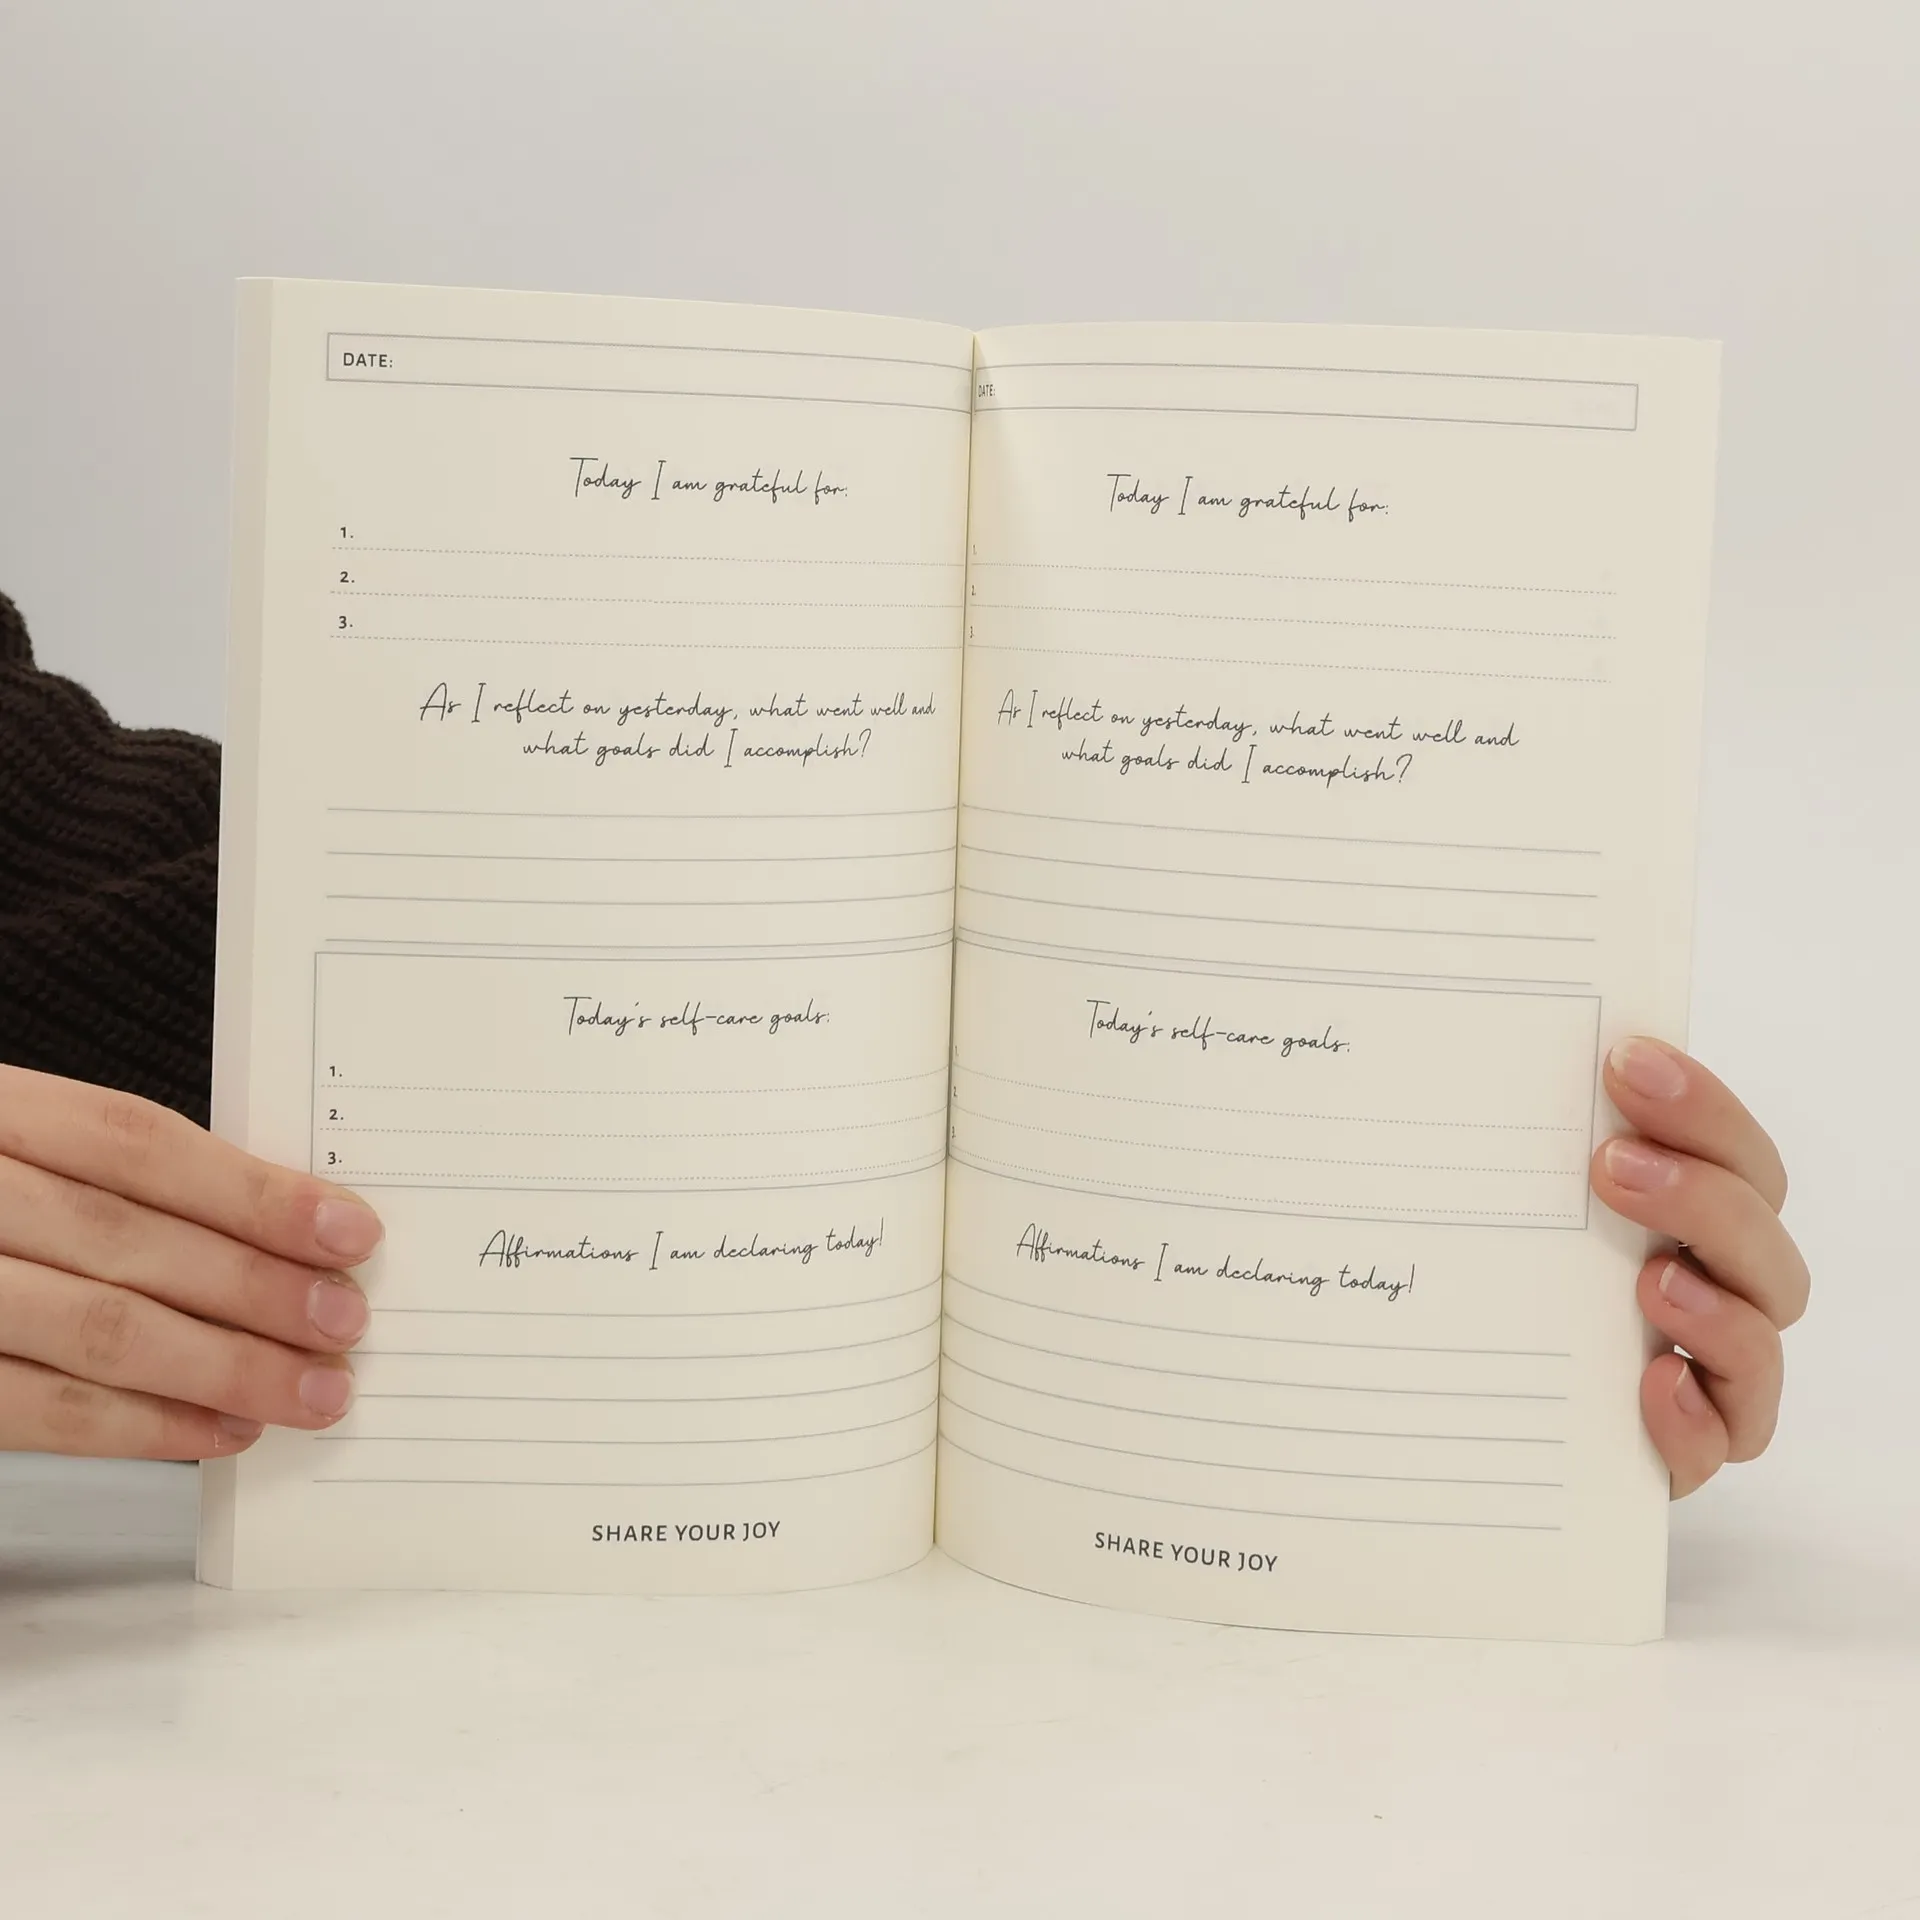 DATE:
Today I am grateful for:
1.
2.
3.
As I reflect on yesterday, what went well and
what goals did I accomplish?
Today's self-care goals:
1.
2.
3.
Affirmations I am declaring today!
SHARE YOUR JOY
DATE:
Today I am grateful for:
1.
2.
3.
As I reflect on yesterday, what went well and
what goals did I accomplish?
Today's self-care goals:
1.
2.
3.
Affirmations I am declaring today!
SHARE YOUR JOY